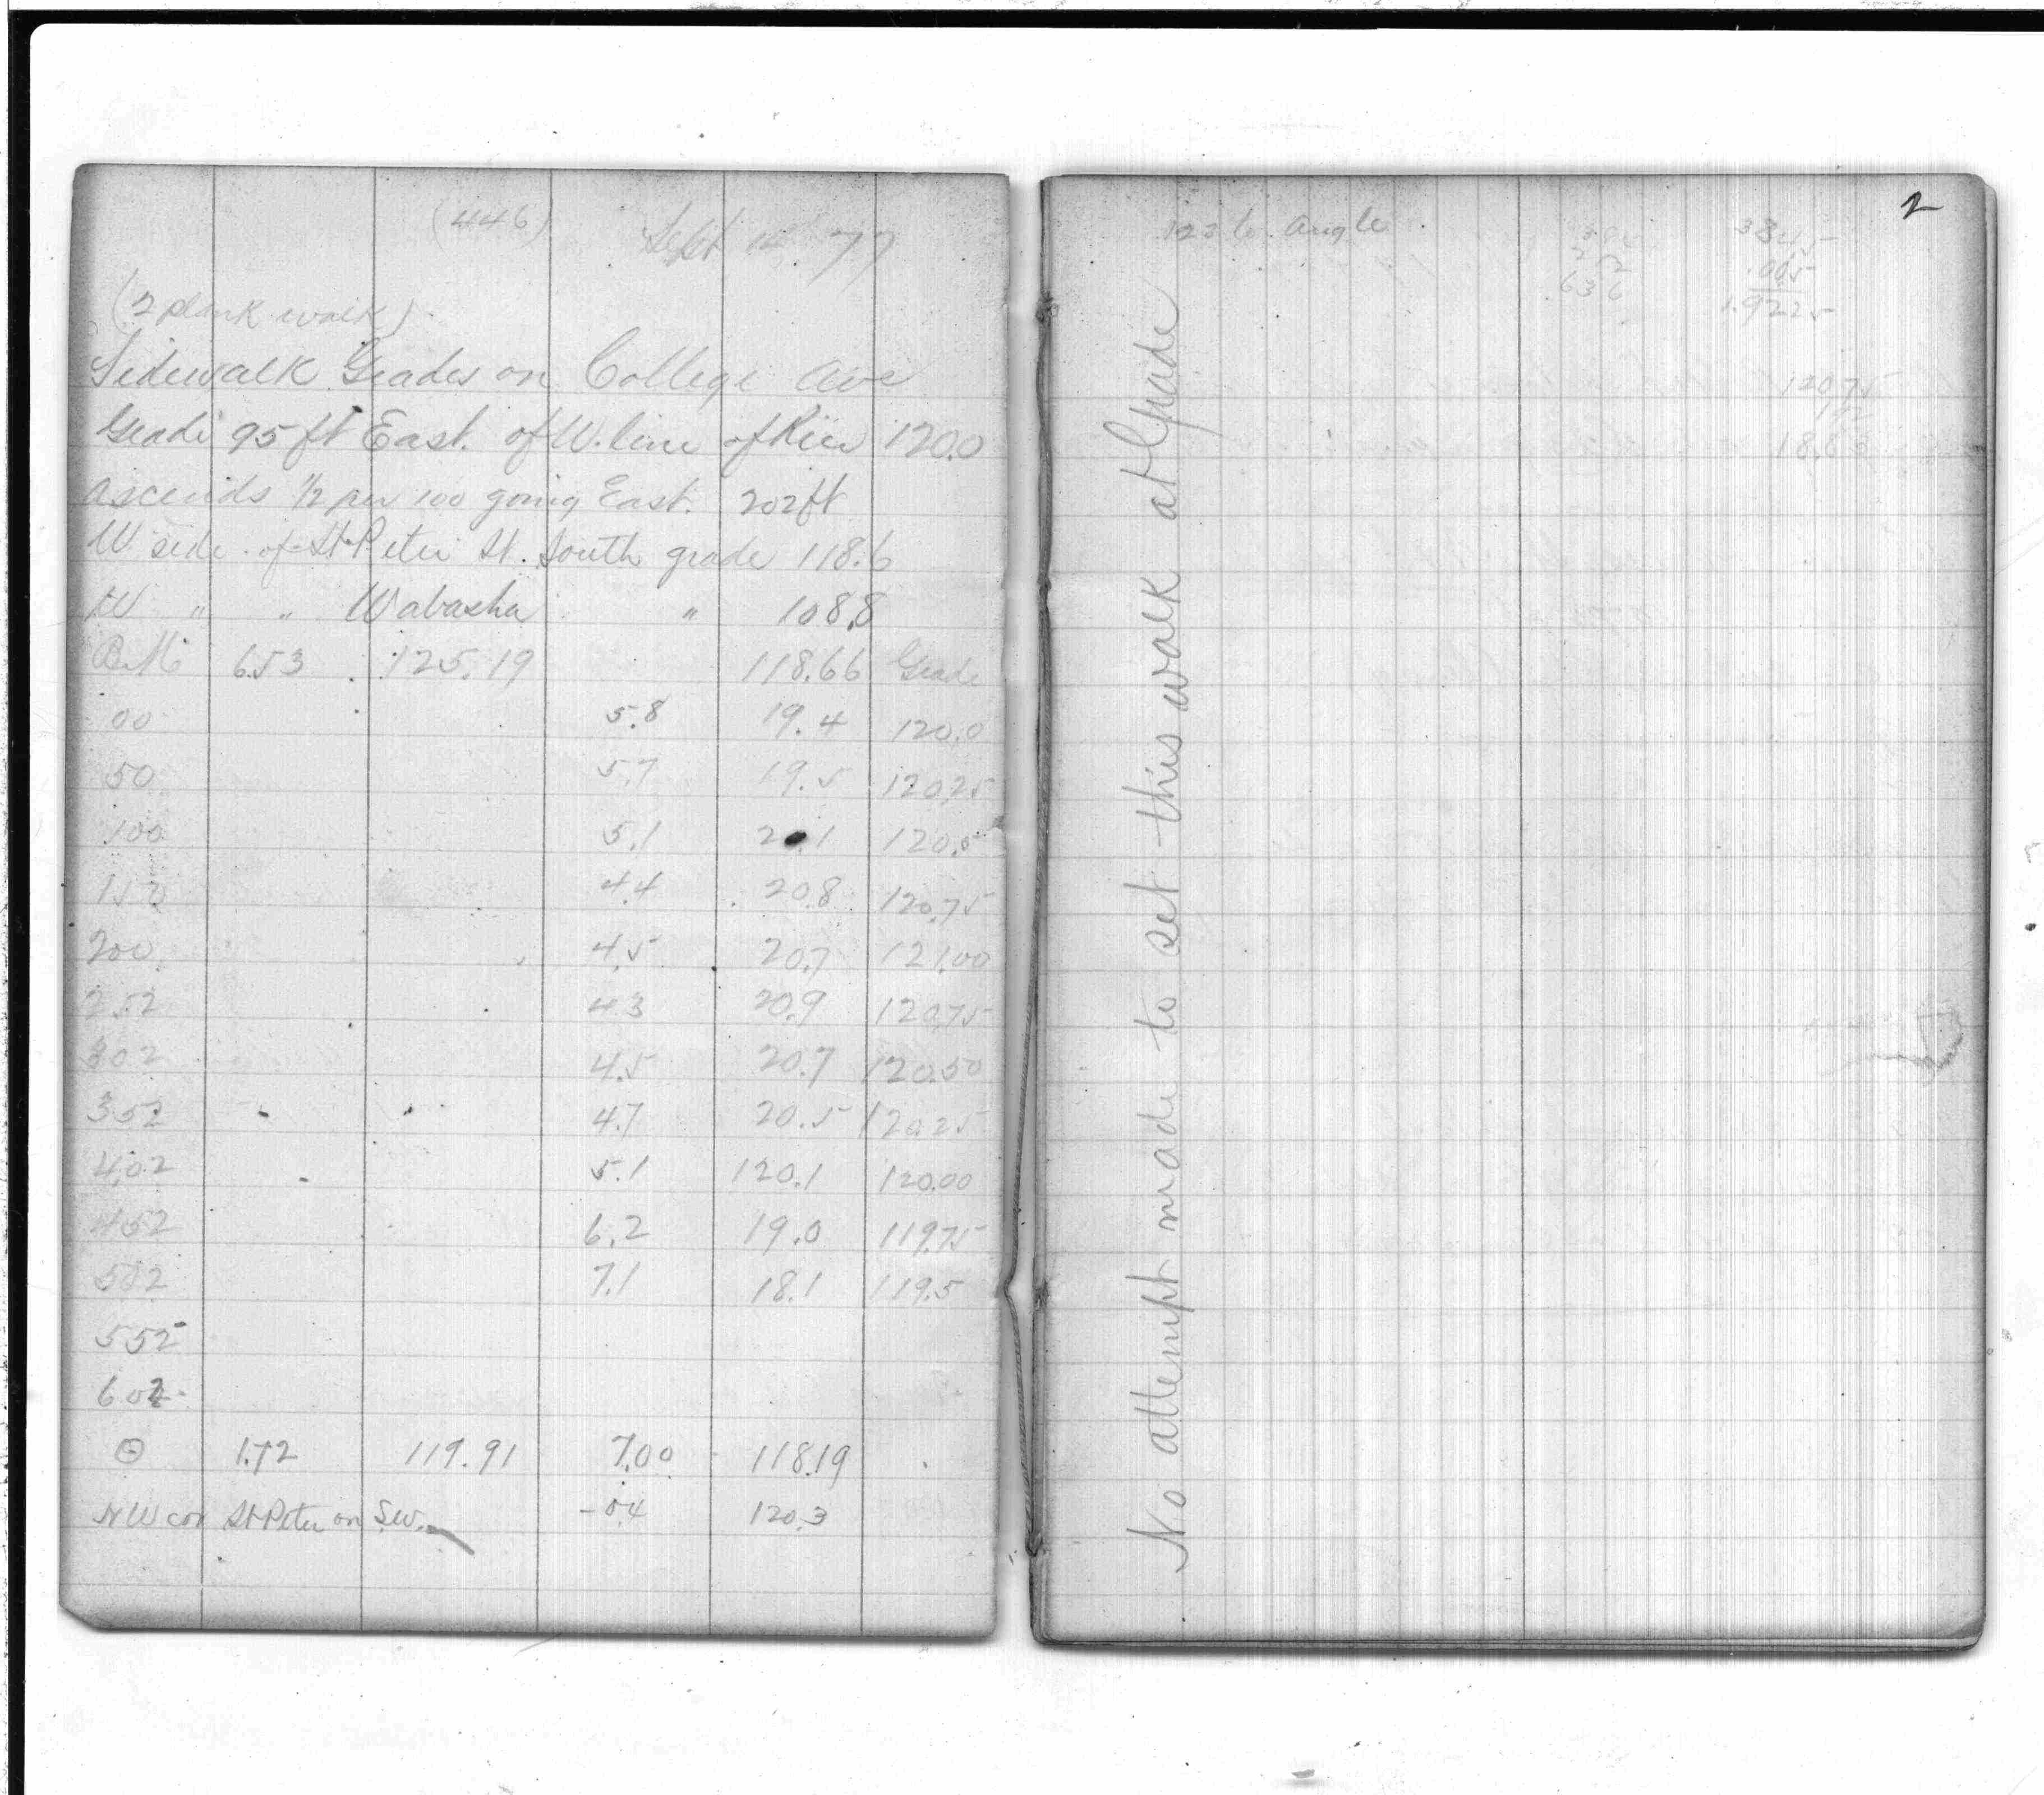 (446) Sept 77
(2 plank walk)
Sidewalk Grades on College Ave
Grade 95 ft East. of W. line of Rice 120.0
ascends 1/2 per 100 going East. 202 ft
W. side of St Peter St. South grade 118.6
W " " Wabasha " 108.8
B.M. 6.53 125.19 118.66 Grade
00 5.8 19.4 120.0
50 5.7 19.5 120.25
100 5.1 20.1 120.5
150 4.4 20.8 120.75
200 4.5 20.7 121.00
252 4.3 20.9 120.75
302 4.5 20.7 120.50
352 4.7 20.5 120.25
402 5.1 120.1 120.00
452 6.2 19.0 119.75
502 7.1 18.1 119.5
552
602
⊙ 1.72 119.91 7.00 118.19
N W cor St Peter on S.W. -0.4 120.3
2
angle
384.5
.005
1.9225
252
636
120.75
No attempt made to set this walk at Grade